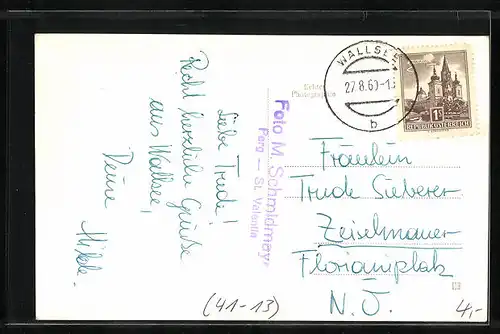 Liebe Trude!
Recht herzliche Grüße
aus Wallsee,
Deine
Foto M. Schmidmayr
Perg — St. Valentin
Echte
Photographie
WALLSEE
27.8.60-13
b
1S
REPUBLIK ÖSTERREICH
Fräulein
Trude Sieberer
Zeiselmauer
Florianiplatz
N.Ö.
(41-13)
4,-